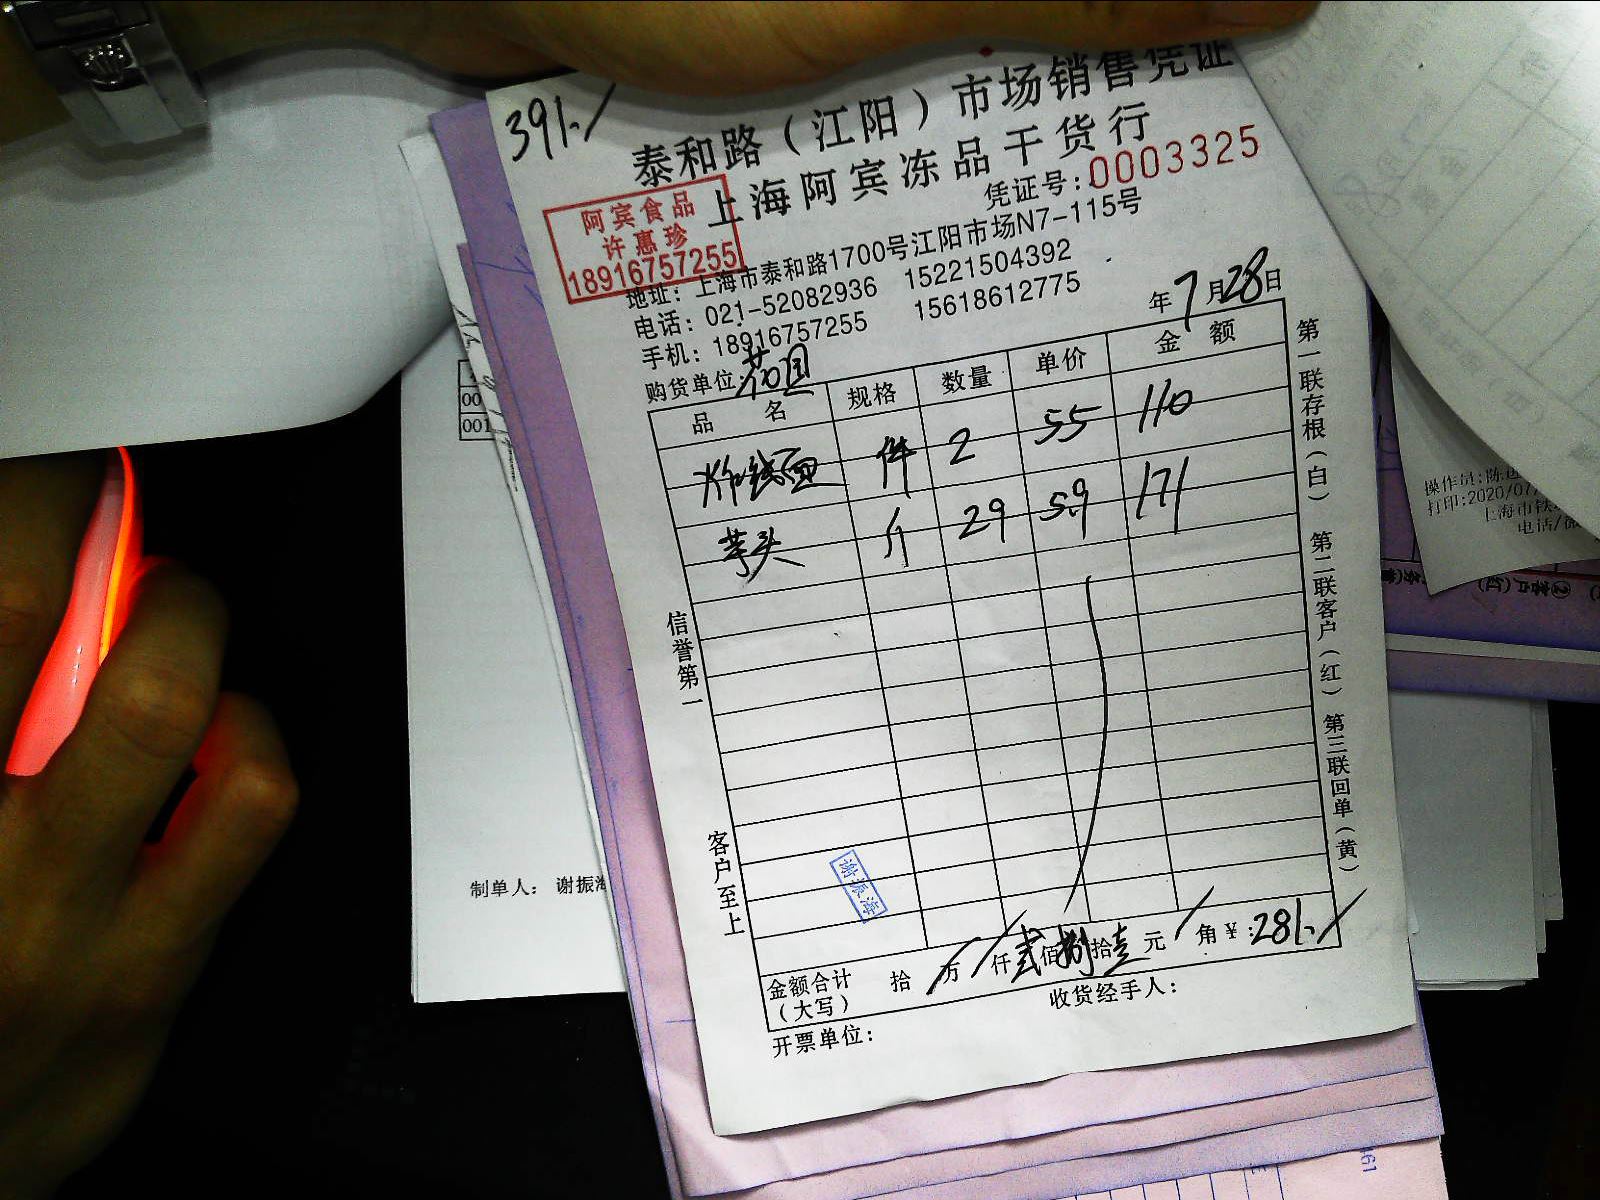 391./
泰和路（江阳）市场销售凭证
上海阿宾冻品干货行
凭证号：0003325
阿宾食品
许惠珍
18916757255
地址：上海市泰和路1700号江阳市场N7-115号
电话：021-52082936 15221504392
手机：18916757255 15618612775
年7月28日
购货单位：
品名 规格 数量 单价 金额
件 2 55 110
芋头 斤 29 5.9 171
信誉第一
客户至上
第一联存根（白） 第二联客户（红） 第三联回单（黄）
谢振海
金额合计（大写） 拾 万 仟 贰 佰 捌 拾 壹 元 角 ¥：281./
开票单位：
收货经手人：
制单人： 谢振海
00
001
操作员：陈
打印：2020/07/
上海市铁
电话/微
②客户(红)
461